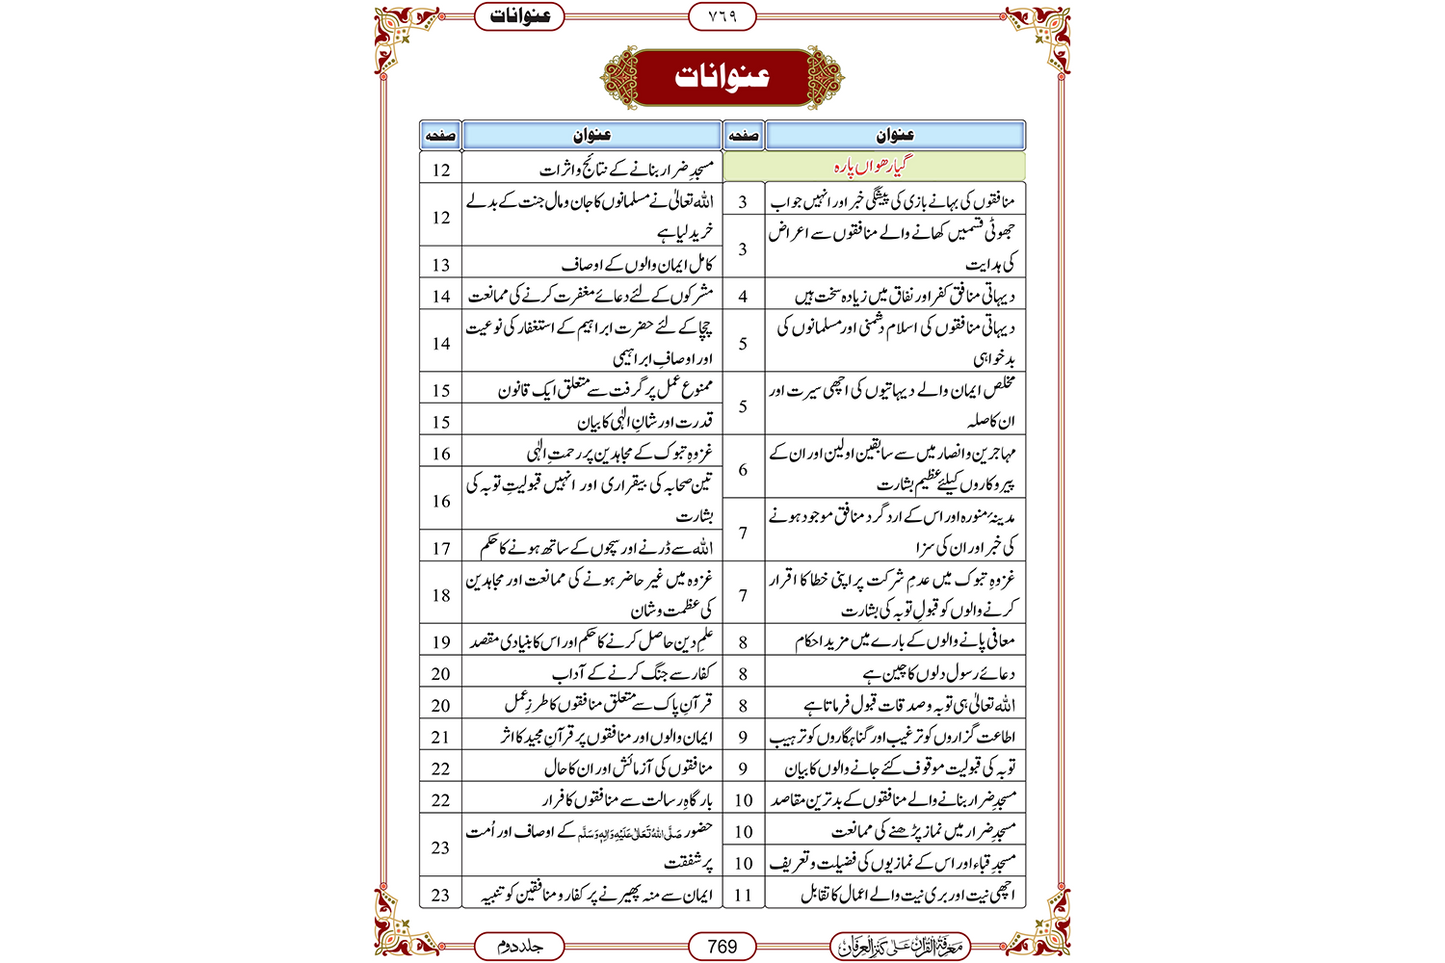 عنوانات
٧٦٩
عنوانات
عنوان صفحہ
گیارھواں پارہ
منافقوں کی بہانے بازی کی پیشگی خبر اور انہیں جواب 3
جھوٹی قسمیں کھانے والے منافقوں سے اعراض
کی ہدایت 3
دیہاتی منافق کفر اور نفاق میں زیادہ سخت ہیں 4
دیہاتی منافقوں کی اسلام دشمنی اور مسلمانوں کی
بدخواہی 5
مخلص ایمان والے دیہاتیوں کی اچھی سیرت اور
ان کا صلہ 5
مہاجرین و انصار میں سے سابقین اولین اور ان کے
پیروکاروں کیلئے عظیم بشارت 6
مدینۂ منورہ اور اس کے ارد گرد منافق موجود ہونے
کی خبر اور ان کی سزا 7
غزوہِ تبوک میں عدمِ شرکت پر اپنی خطا کا اقرار
کرنے والوں کو قبولِ توبہ کی بشارت 7
معافی پانے والوں کے بارے میں مزید احکام 8
دعائے رسول دلوں کا چین ہے 8
اللہ تعالیٰ ہی توبہ و صدقات قبول فرماتا ہے 8
اطاعت گزاروں کو ترغیب اور گناہگاروں کو ترہیب 9
توبہ کی قبولیت موقوف کئے جانے والوں کا بیان 9
مسجدِ ضرار بنانے والے منافقوں کے بدترین مقاصد 10
مسجدِ ضرار میں نماز پڑھنے کی ممانعت 10
مسجدِ قباء اور اس کے نمازیوں کی فضیلت و تعریف 10
اچھی نیت اور بری نیت والے اعمال کا تقابل 11
عنوان صفحہ
مسجدِ ضرار بنانے کے نتائج و اثرات 12
اللہ تعالیٰ نے مسلمانوں کا جان و مال جنت کے بدلے
خرید لیا ہے 12
کامل ایمان والوں کے اوصاف 13
مشرکوں کے لئے دعائے مغفرت کرنے کی ممانعت 14
چچا کے لئے حضرت ابراہیم کے استغفار کی نوعیت
اور اوصافِ ابراہیمی 14
ممنوع عمل پر گرفت سے متعلق ایک قانون 15
قدرت اور شانِ الٰہی کا بیان 15
غزوہِ تبوک کے مجاہدین پر رحمتِ الٰہی 16
تین صحابہ کی بیقراری اور انہیں قبولیتِ توبہ کی
بشارت 16
اللہ سے ڈرنے اور سچوں کے ساتھ ہونے کا حکم 17
غزوہ میں غیر حاضر ہونے کی ممانعت اور مجاہدین
کی عظمت و شان 18
علمِ دین حاصل کرنے کا حکم اور اس کا بنیادی مقصد 19
کفار سے جنگ کرنے کے آداب 20
قرآنِ پاک سے متعلق منافقوں کا طرزِ عمل 20
ایمان والوں اور منافقوں پر قرآنِ مجید کا اثر 21
منافقوں کی آزمائش اور ان کا حال 22
بارگاہِ رسالت سے منافقوں کا فرار 22
حضور صَلَّى اللهُ تَعَالٰى عَلَيْهِ وَاٰلِهٖ وَسَلَّم کے اوصاف اور اُمت
پر شفقت 23
ایمان سے منہ پھیرنے پر کفار و منافقین کو تنبیہ 23
معرفۃ القرآن علی کنز العرفان
769
جلد دوم